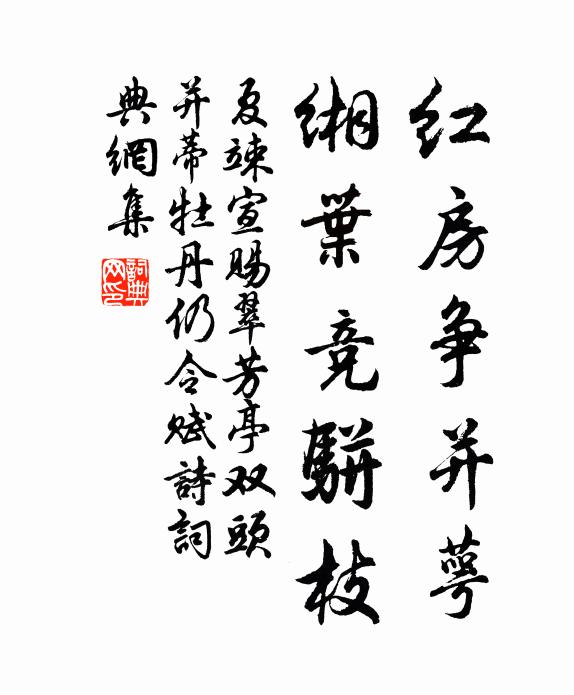 红房争并萼
缃葉竞駢枝
夏竦宣赐翠芳亭双頭
并蒂牡丹仍令赋詩詞
典網集
詞典网印